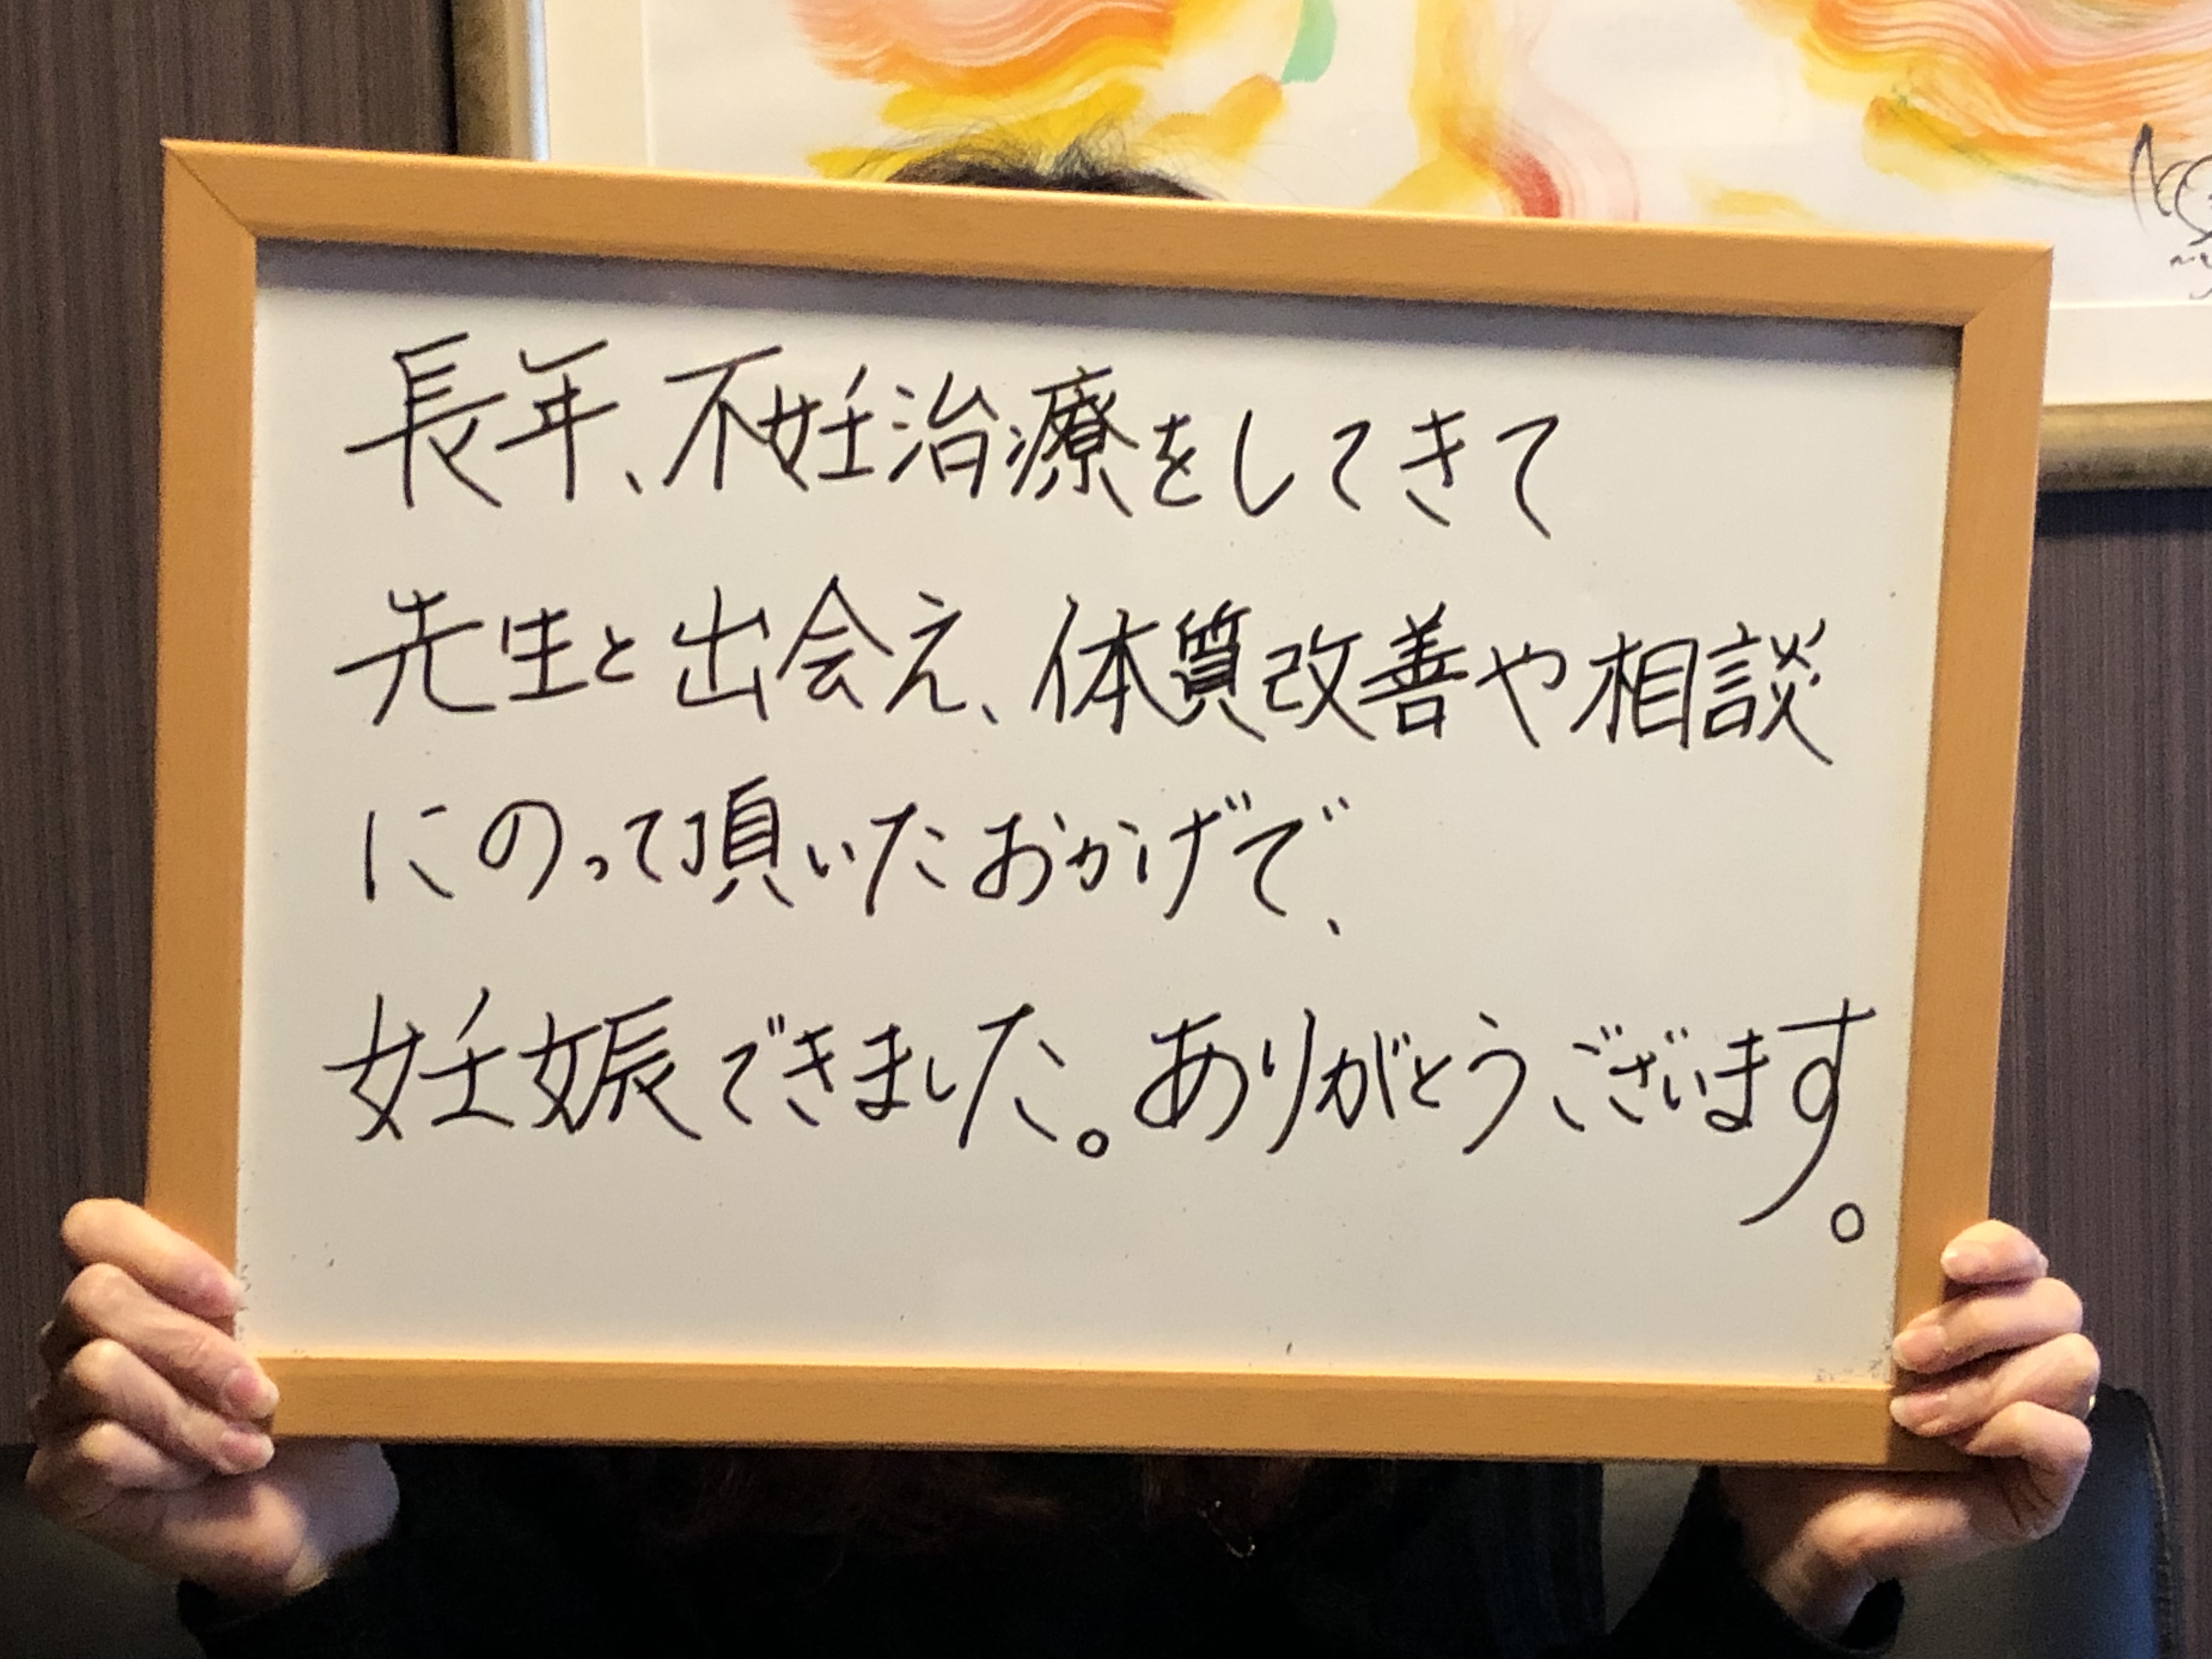 長年、不妊治療をしてきて
先生と出会え、体質改善や相談
にのって頂いたおかげで、
妊娠できました。ありがとうございます。